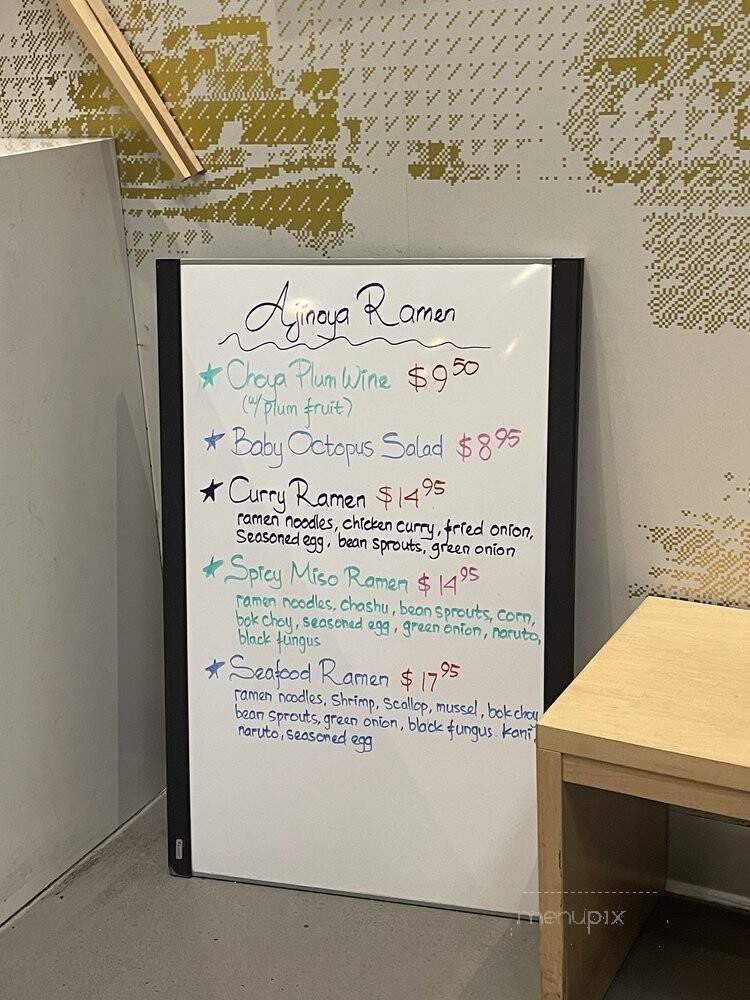 Ajinoya Ramen
★ Choya Plum Wine $9⁵⁰
(w/ plum fruit)
★ Baby Octopus Salad $8⁹⁵
★ Curry Ramen $14⁹⁵
ramen noodles, chicken curry, fried onion,
Seasoned egg, bean sprouts, green onion
★ Spicy Miso Ramen $14⁹⁵
ramen noodles, chashu, bean sprouts, corn,
bok choy, seasoned egg, green onion, naruto,
black fungus
★ Seafood Ramen $17⁹⁵
ramen noodles, shrimp, scallop, mussel, bok choy
bean sprouts, green onion, black fungus. kani,
naruto, seasoned egg
menupix